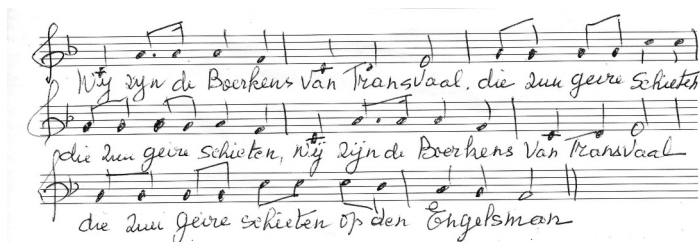 Wij zijn de Boerkens van Transvaal, die zuu geire schieten
die zuu geire schieten, Wij zijn de Boerkens van Transvaal
die zuu geire schieten op den Engelsman